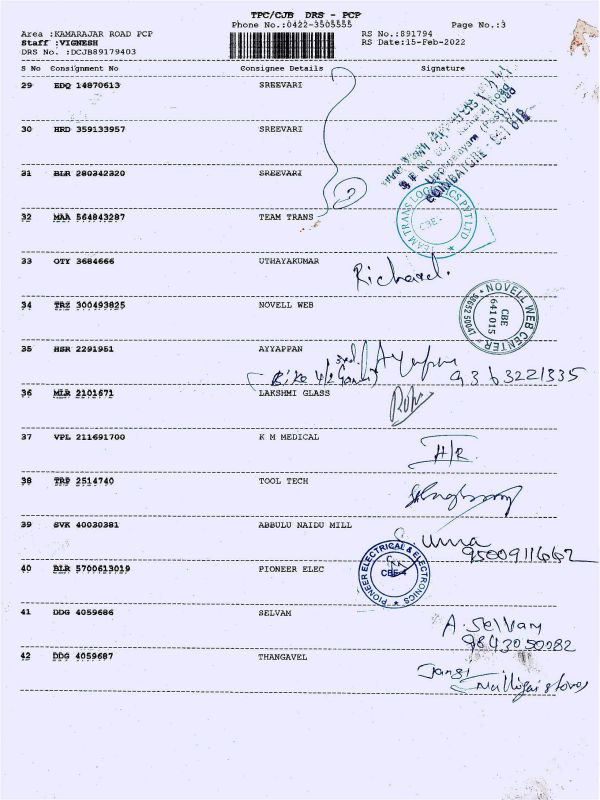 TPC/CJB DRS - PCP
Phone No.:0422-3505555 Page No.:3
Area :KAMARAJAR ROAD PCP RS No.:891794
Staff :VIGNESH RS Date:15-Feb-2022
DRS No. :DCJB89179403
S No Consignment No Consignee Details Signature
29 EDQ 14870613 SREEVARI
30 HRD 359133957 SREEVARI
31 BLR 280342320 SREEVARI
COIMBATORE - 641 015
32 MAA 564843287 TEAM TRANS
TEAM TRANS LOGISTICS PVT LTD
CBE-
33 OTY 3684666 UTHAYAKUMAR
Richard.
34 TRZ 300493825 NOVELL WEB
NOVELL WEB CENTER
CBE
641 015
35 HSR 2291951 AYYAPPAN
Ayyappan
9363221335
36 MLR 2101671 LAKSHMI GLASS
37 VPL 211691700 K M MEDICAL
H/R
38 TRP 2514740 TOOL TECH
39 SVK 40030381 ABBULU NAIDU MILL
Uma
9500911662
40 BLR 5700613019 PIONEER ELEC
PIONEER ELECTRICAL & ELECTRONICS
CBE-4
41 DDG 4059686 SELVAM
A. Selvam
9843050082
42 DDG 4059687 THANGAVEL